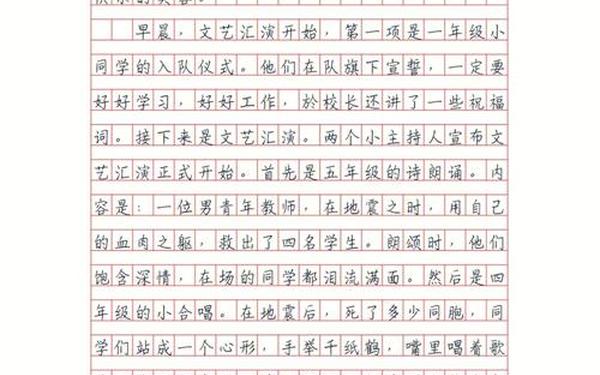 早晨，文艺汇演开始，第一项是一年级小
同学的入队仪式。他们在队旗下宣誓，一定要
好好学习，好好工作，於校长还讲了一些祝福
词。接下来是文艺汇演。两个小主持人宣布文
艺汇演正式开始。首先是五年级的诗朗诵。内
容是：一位男青年教师，在地震之时，用自己
的血肉之躯，救出了四名学生。朗颂时，他们
饱含深情，在场的同学都泪流满面。然后是四
年级的小合唱。在地震后，死了多少同胞，同
学们站成一个心形，手举千纸鹤，嘴里唱着歌